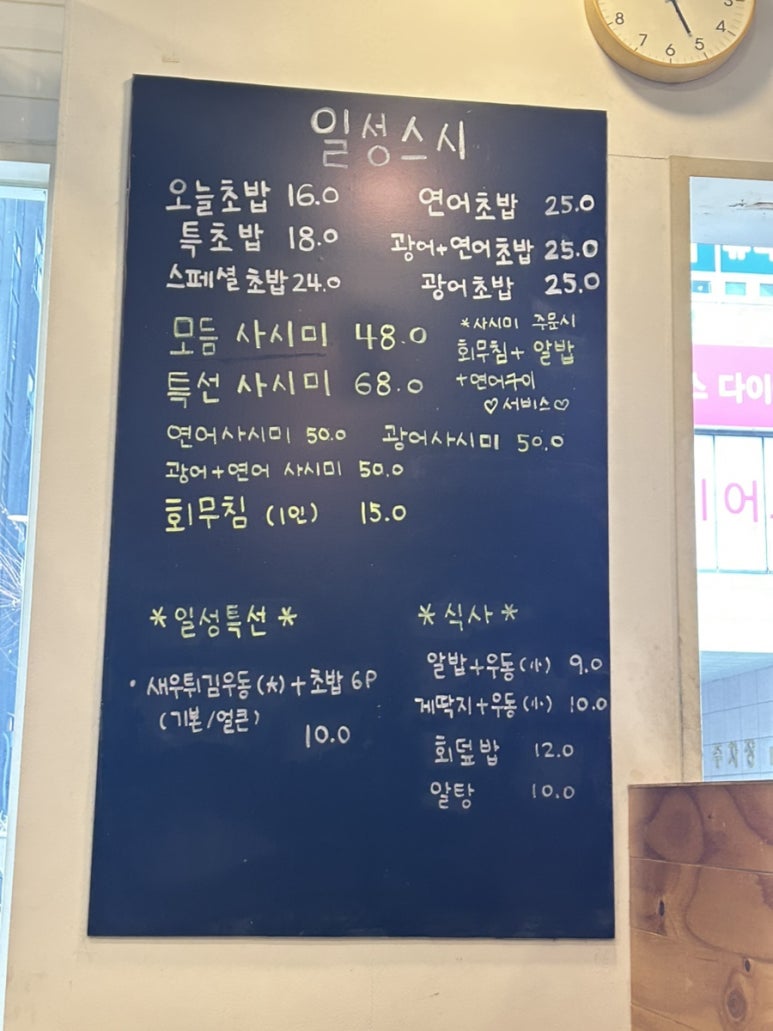 일성스시
오늘초밥 16.0
특초밥 18.0
스페셜초밥 24.0
연어초밥 25.0
광어+연어초밥 25.0
광어초밥 25.0
모듬 사시미 48.0
특선 사시미 68.0
*사시미 주문시
회무침+ 알밥
+연어구이
♡서비스♡
연어사시미 50.0 광어사시미 50.0
광어+연어 사시미 50.0
회무침 (1인) 15.0
*일성특선*
· 새우튀김우동(大)+초밥 6P
(기본/얼큰)
10.0
*식사*
알밥+우동(小) 9.0
게딱지+우동(小) 10.0
회덮밥 12.0
알탕 10.0
8 7 6 5 4
스 다이
이어
주차장